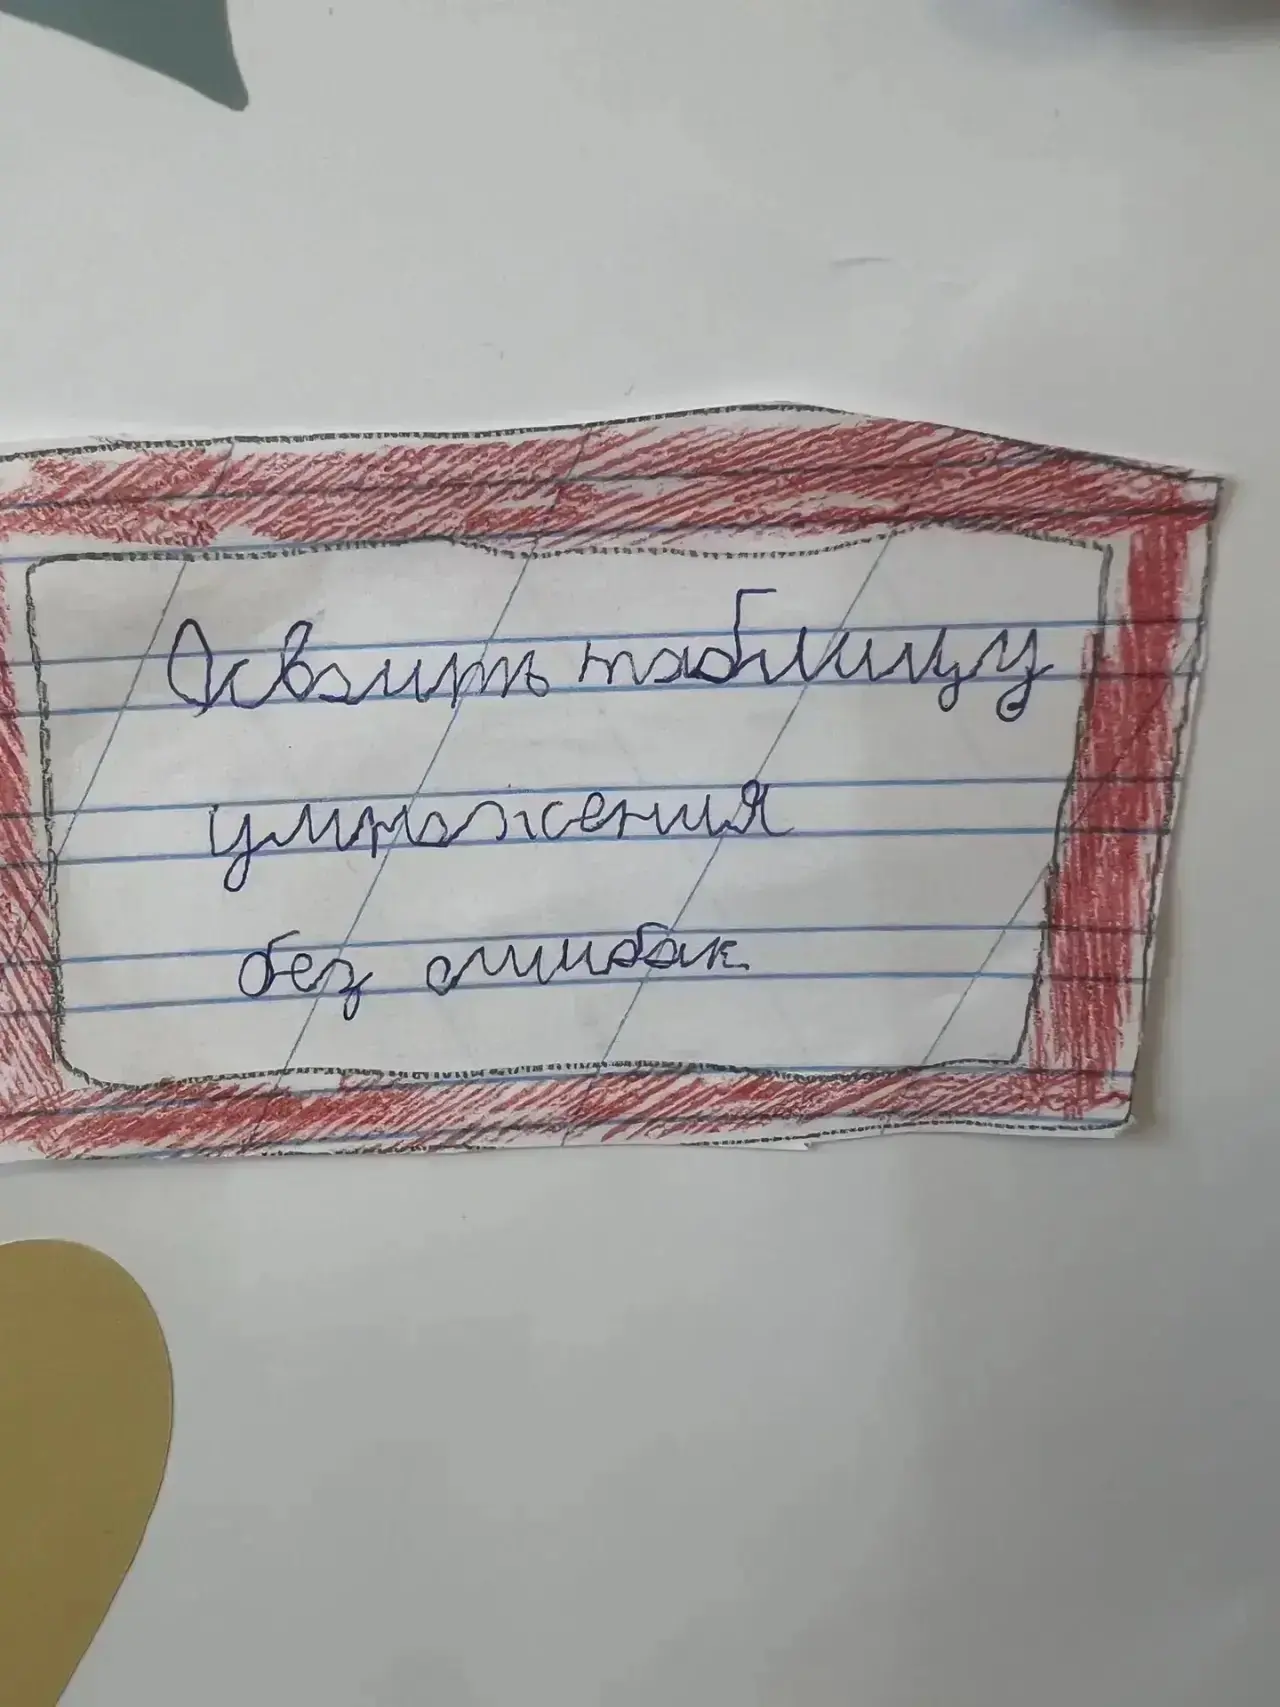 Освоить таблицу
умножения
без ошибок